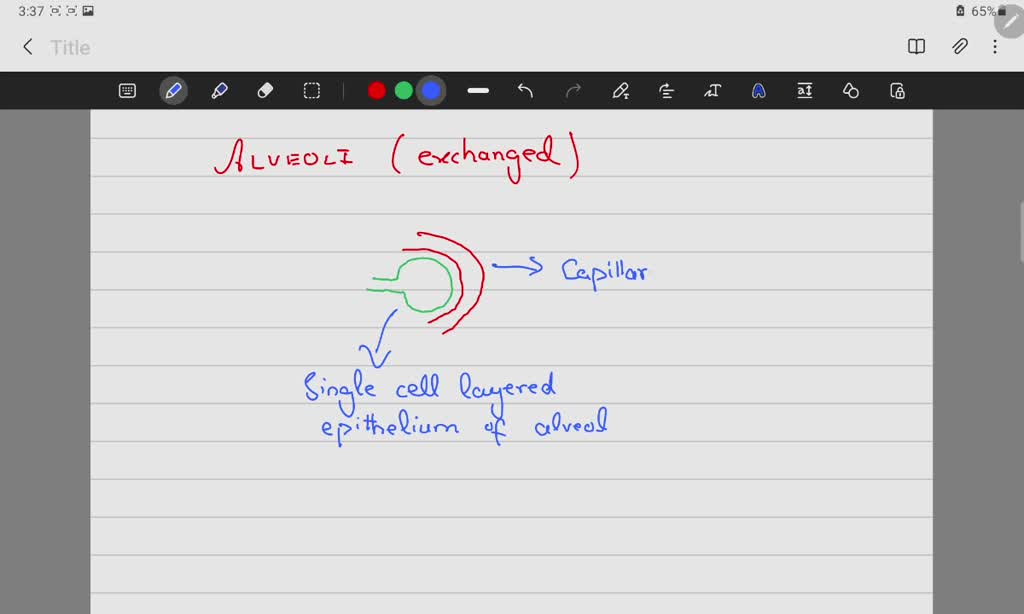 3:37
65%
Title
ALVEOLI (exchanged)
Capillar
Single cell layered
epithelium of alveol